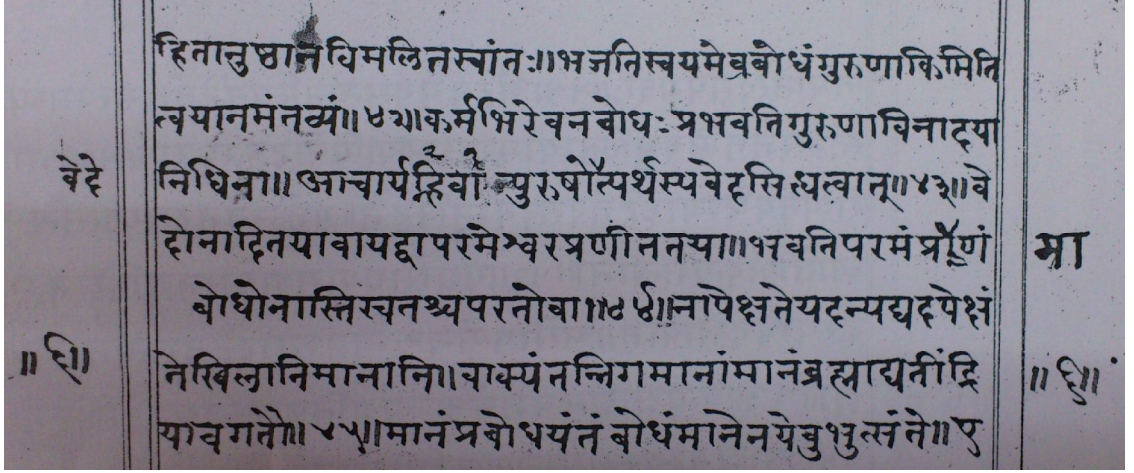 हितानुष्ठानविमलितस्वांतः॥भजतिस्वयमेवबोधंगुरुणाकिमिति
त्वयानमंतव्यं॥४२॥कर्मभिरेवनबोधःप्रभवतिगुरुणाविनादया
वेदे
निधिना॥आचार्यवान्हिपुरुषोत्यर्थस्यवेदसिद्धत्वात्॥४३॥वे
दोनादितयावायद्वापरमेश्वरप्रणीततया॥भवतिपरमंप्रमाणं
मा
बोधोनास्तिस्वतश्चपरतोवा॥४४॥नापेक्षतेयदन्यद्यदपेक्षं
॥६॥
तेखिलानिमानानि॥वाक्यंतन्निगमानांमानंब्रह्माद्यतींद्रि
॥६॥
यावगतौ॥४५॥मानंप्रबोधयंतंबोधंमानेनयेबुभुत्संते॥ए